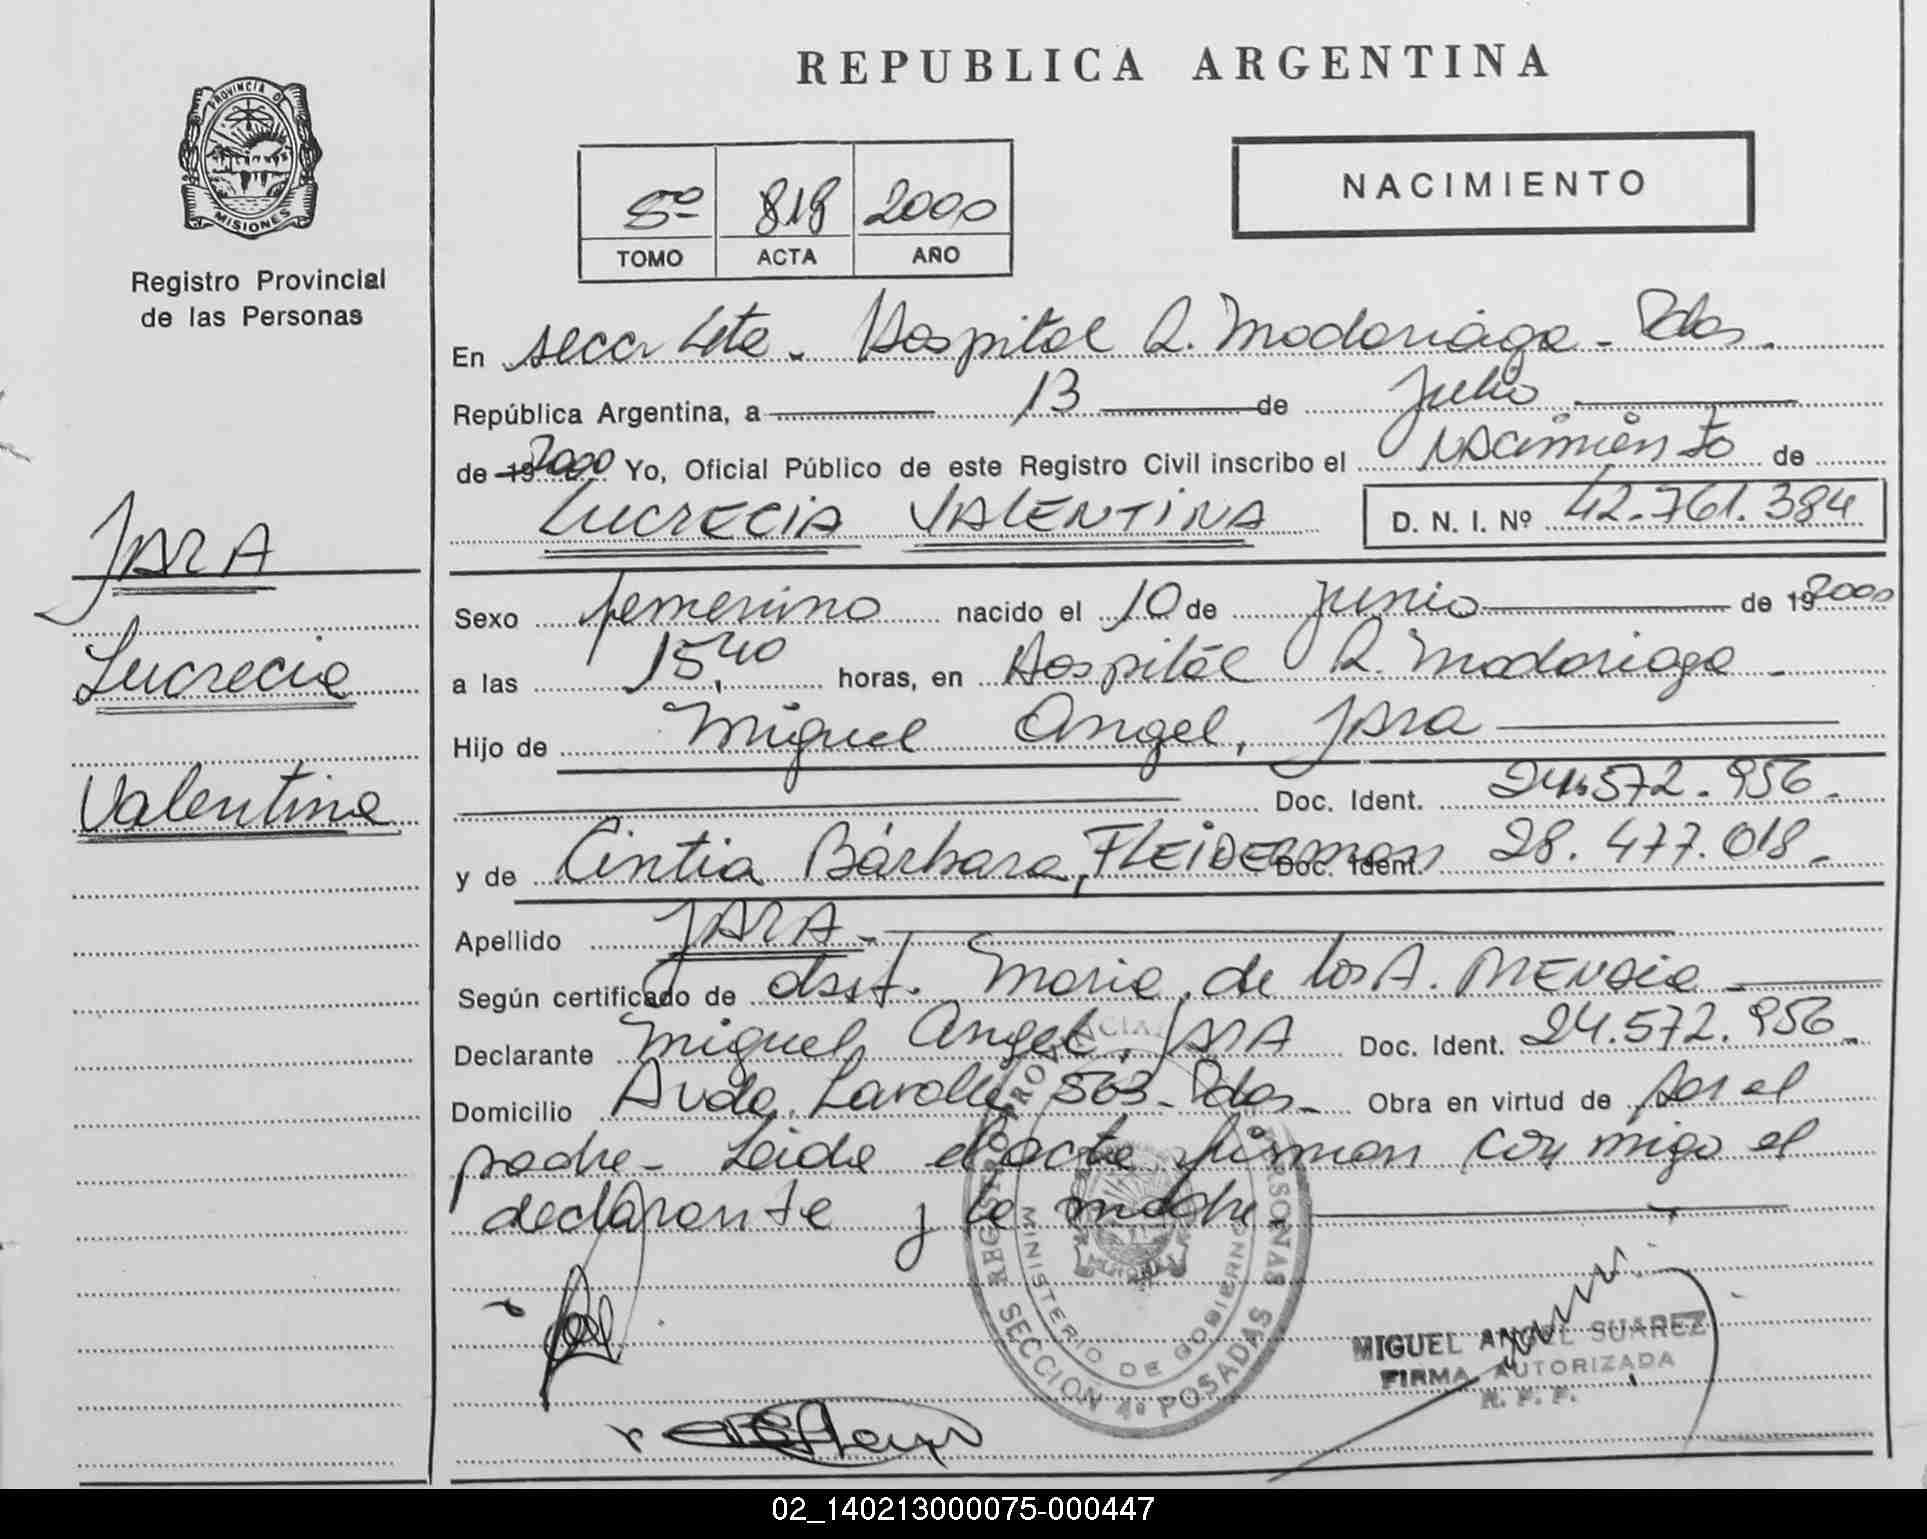 REPUBLICA ARGENTINA
PROVINCIA DE
MISIONES
Registro Provincial
de las Personas
5º 818 2000
TOMO ACTA AÑO
NACIMIENTO
En secc 4ta. Hospital R. Madariaga - Pdas.
República Argentina, a 13 de Julio
de 19 2000 Yo, Oficial Público de este Registro Civil inscribo el Nacimiento de
LUCRECIA VALENTINA D. N. I. Nº 42.761.384
JARA
Lucrecia
Valentina
Sexo femenino nacido el 10 de junio de 19 2000
a las 15,40 horas, en Hospital R. Madariaga -
Hijo de Miguel Angel, JARA
Doc. Ident. 24.572.956.
y de Cintia Bárbara, FLEIDERman Doc. Ident. 28.477.018.
Apellido JARA
Según certificado de obst. Maria de los A. MENDIE
Declarante Miguel Angel, JARA Doc. Ident. 24.572.956.
Domicilio Avda. Lavalle 563 - Pdas - Obra en virtud de ser el
padre - Leida el acta firman conmigo el
declarante y la madre
REGISTRO PROVINCIAL PERSONAS
MINISTERIO DE GOBIERNO
SECCION 4º POSADAS
MIGUEL ANGEL SUAREZ
FIRMA AUTORIZADA
R. P. P.
02_140213000075-000447